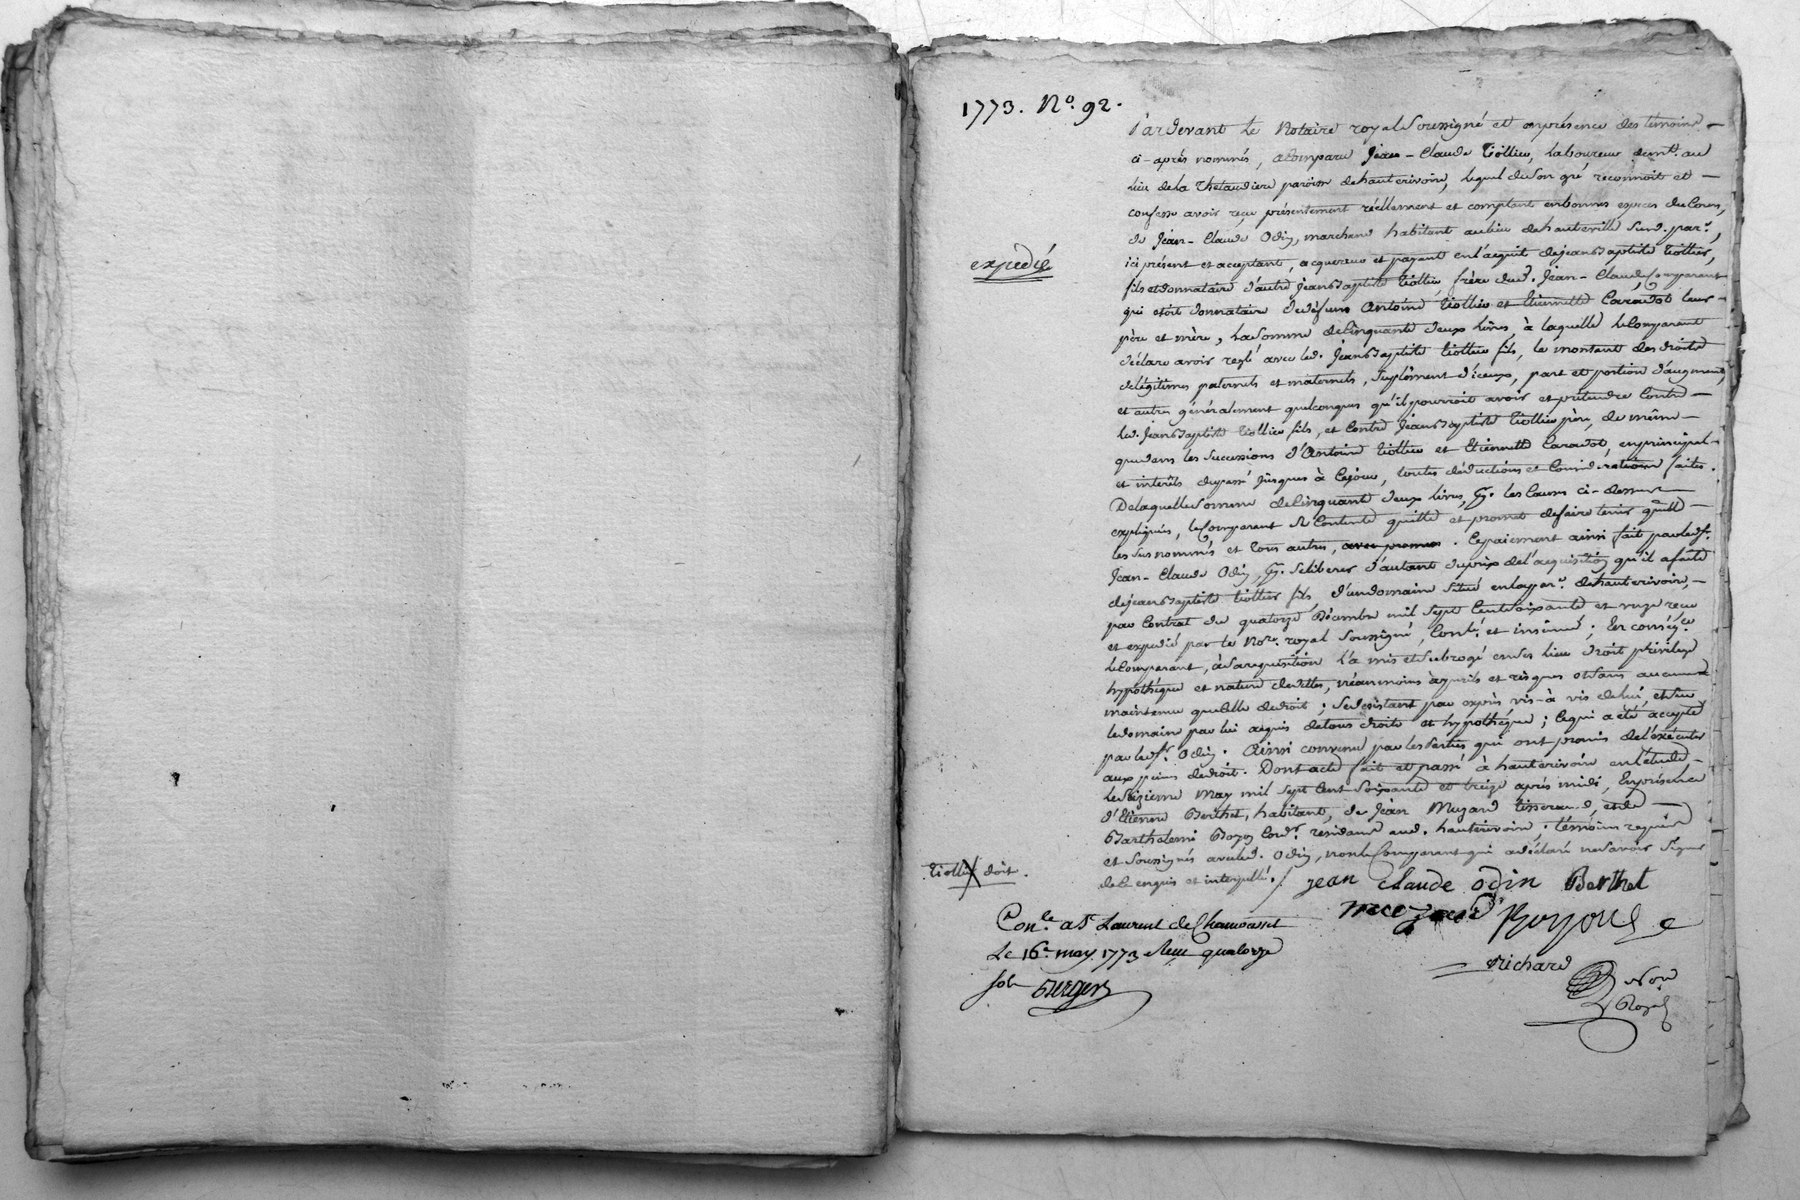 1773. No. 92.
Pardevant Le Notaire royal Soussigné et en présence des témoins
ci-après nommés, a Comparu Jean-Claude Viollier, Laboureur demt. au
lieu de la Thelaudiere paroisse de hauterivoire, lequel de son gré reconnoit et
confesse avoir reçu présentement réellement et comptant en bonnes especes du Cours,
de Jean-Claude Odin, marchand habitant au lieu de hauteville Susd. parr.,
ici présent et acceptant, acquereur et payant en l'acquit de jean Baptiste Viollier,
expedié
fils et donnataire d'autre jean Baptiste Viollier, frère dud. Jean-Claude, Comparant
qui étoit donnataire de défunts Antoine Viollier et Etiennette Caradot leurs
père et mère, La Somme de Cinquante deux livres, à laquelle le Comparant
déclare avoir reglé avec led. Jean Baptiste Viollier fils, le montant des droits
de légitimes paternels et maternels, Suplément d'iceux, part et portion d'augment,
et autres généralement quelconques qu'il pourroit avoir et prétendre Contre
led. Jean Baptiste Viollier fils, et Contre Jean Baptiste Viollier père, de même
que dans les Successions d'Antoine Viollier et Etiennette Caradot, en principal
et intérêts du passé jusques à Ce jour, toutes déductions et Considerations faites.
De laquelle Somme de Cinquante deux livres, les Causes ci-dessus
expliquées, le Comparant Se Contente quitte et promet de faire tenir quitte
les Sus nommés et tous autres, avec promes. Ce paiement ainsi fait par led. Sr.
Jean-Claude Odin, Se liberer d'autant du prix de l'acquisition qu'il a faite
de jean Baptiste Viollier fils, d'un domaine Situé en lad. parr. de hauterivoire,
par Contrat du quatorze Décembre mil Sept Cent Soixante et onze reçu
et expedié par le Nore. royal Soussigné, Conlé. et insinué; En conséqce.
le Comparant, à Sa requisition l'a mis et Subrogé en Ses lieu droit privilege
hypothéque et nature de dettes, néanmoins à perils et risques et Sans aucune
maintenue que Celle de droit; Se desistant par exprès vis-à vis de lui, et Sur
le domaine par lui acquis de tous droits et hypothéque; Ce qui a été accepté
par led. Sr. Odin. Ainsi convenu par les Parties qui ont promis de l'exécuter
aux peines de droit. Dont acte fait et passé à hauterivoire en l'étude,
le Seizieme May mil Sept Cent Soixante et treize après midi, En présence
d'Etienne Berthet, habitant, de Jean Muzard tisserand et de
Barthelemi Boyon Cordr. residants aud. hauterivoire, témoins requis
et Soussignés avec led. Odin, non le Comparant qui a déclaré ne Savoir Signer
Viollier doit.
de Ce enquis et interpellé.
jean claude odin Berthet
muzard Boyon
Conlé. a St Laurent de Chamousset
Le 16e. may 1773 Reçu quatorze
sols Berger
richard
Nore
Royal